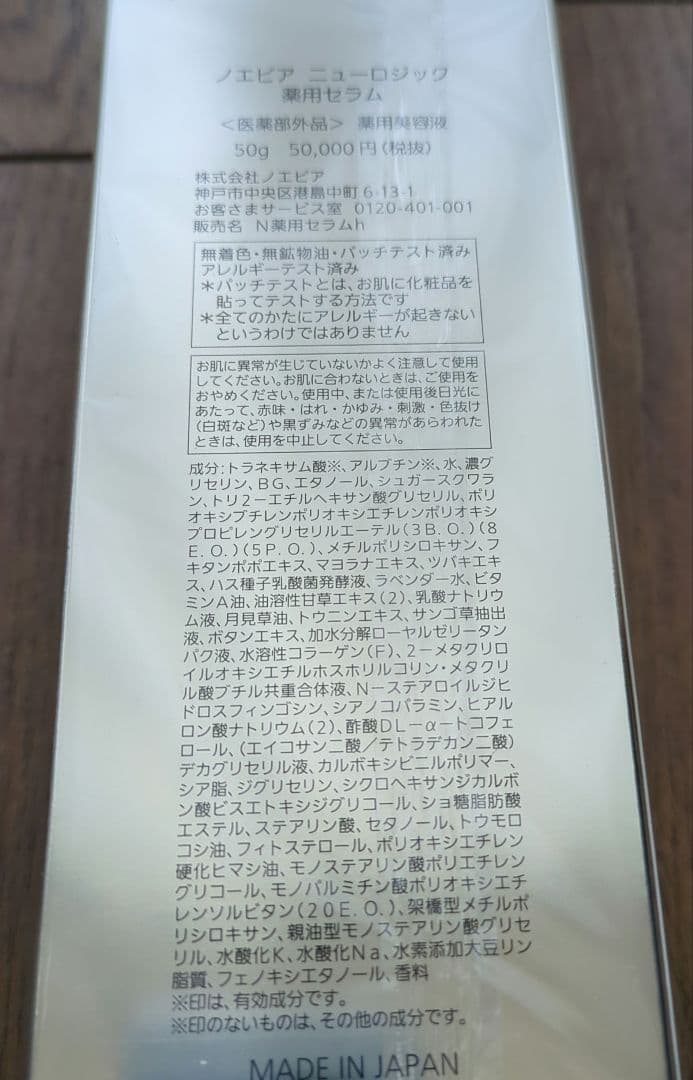 ノエビア ニューロジック
薬用セラム
<医薬部外品> 薬用美容液
50g 50,000円(税抜)
株式会社ノエビア
神戸市中央区港島中町6-13-1
お客さまサービス室 0120-401-001
販売名 N薬用セラムh
無着色・無鉱物油・パッチテスト済み
アレルギーテスト済み
*パッチテストとは、お肌に化粧品を
貼ってテストする方法です
*全てのかたにアレルギーが起きない
というわけではありません
お肌に異常が生じていないかよく注意して使用
してください。お肌に合わないときは、ご使用を
おやめください。使用中、または使用後日光に
あたって、赤味・はれ・かゆみ・刺激・色抜け
(白斑など)や黒ずみなどの異常があらわれた
ときは、使用を中止してください。
成分:トラネキサム酸※、アルブチン※、水、濃グ
リセリン、BG、エタノール、シュガースクワラ
ン、トリ2-エチルヘキサン酸グリセリル、ポリ
オキシブチレンポリオキシエチレンポリオキシ
プロピレングリセリルエーテル(3B.O.)(8
E.O.)(5P.O.)、メチルポリシロキサン、フ
キタンポポエキス、マヨラナエキス、ツバキエキ
ス、ハス種子乳酸菌発酵液、ラベンダー水、ビタ
ミンA油、油溶性甘草エキス(2)、乳酸ナトリウ
ム液、月見草油、トウニンエキス、サンゴ草抽出
液、ボタンエキス、加水分解ローヤルゼリータン
パク液、水溶性コラーゲン(F)、2-メタクリロ
イルオキシエチルホスホリルコリン・メタクリ
ル酸ブチル共重合体液、N-ステアロイルジヒ
ドロスフィンゴシン、シアノコバラミン、ヒアル
ロン酸ナトリウム(2)、酢酸DL-α-トコフェ
ロール、(エイコサン二酸/テトラデカン二酸)
デカグリセリル液、カルボキシビニルポリマー、
シア脂、ジグリセリン、シクロヘキサンジカルボ
ン酸ビスエトキシジグリコール、ショ糖脂肪酸
エステル、ステアリン酸、セタノール、トウモロ
コシ油、フィトステロール、ポリオキシエチレン
硬化ヒマシ油、モノステアリン酸ポリエチレン
グリコール、モノパルミチン酸ポリオキシエチ
レンソルビタン(20E.O.)、架橋型メチルポ
リシロキサン、親油型モノステアリン酸グリセ
リル、水酸化K、水酸化Na、水素添加大豆リン
脂質、フェノキシエタノール、香料
※印は、有効成分です。
※印のないものは、その他の成分です。
MADE IN JAPAN